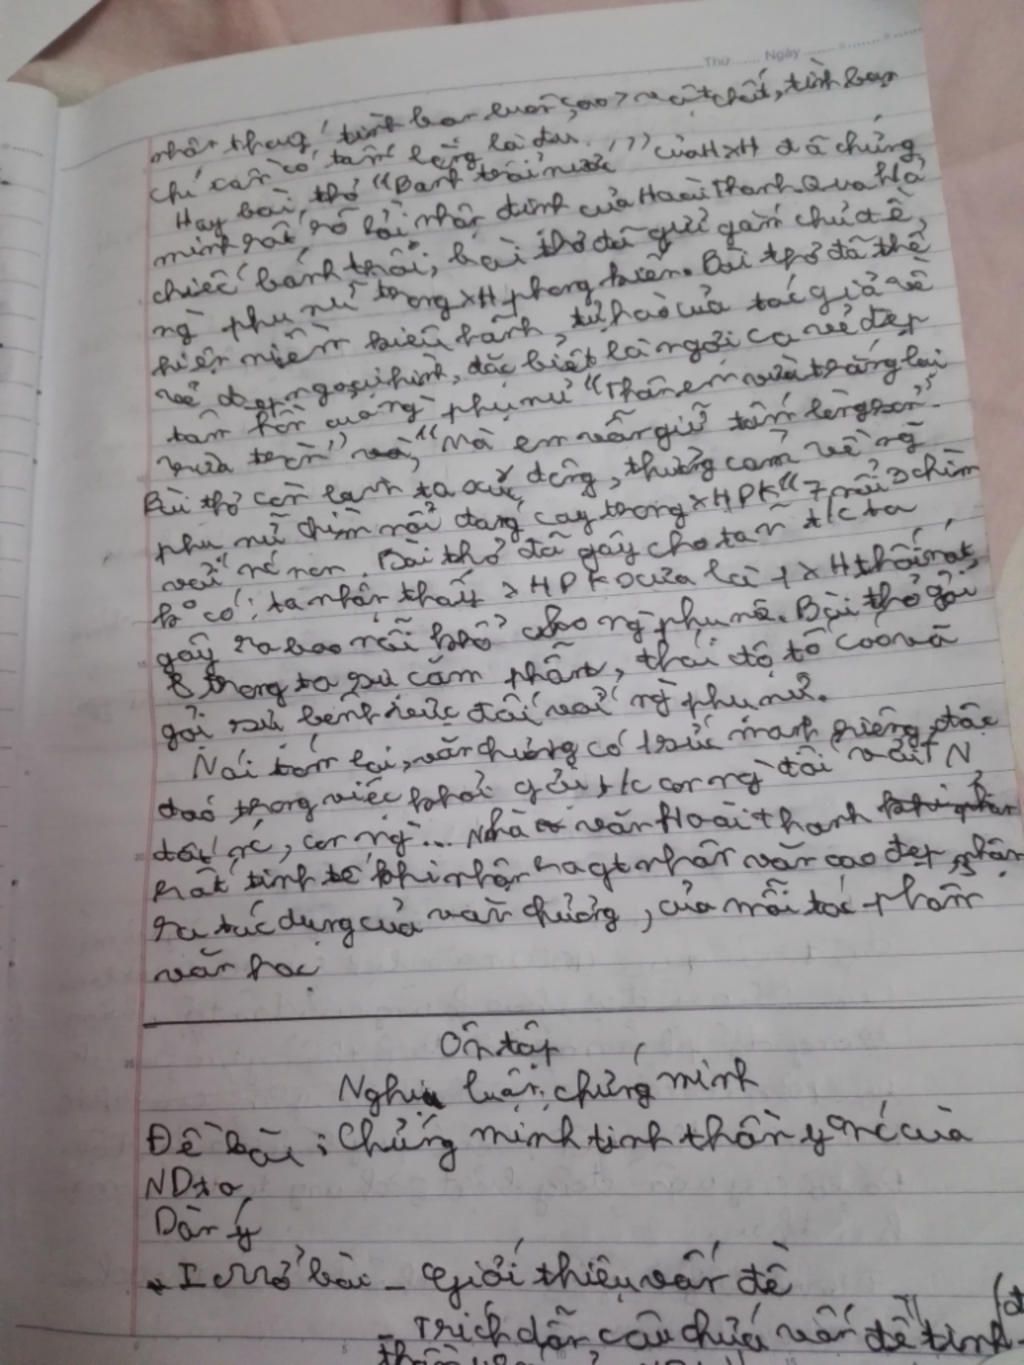 Thứ ...... Ngày ......
nhân thang, tình bạn luôn cao > vật chất, tình bạn
chỉ cần có tấm lòng là đủ.
Hay bài thơ "Bánh trôi nước" của HXH đã chứng
minh rất rõ lời nhận định của Hoài Thanh. Qua h/ả
chiếc bánh trôi, bài thơ đã gửi gắm chủ đề
ng phụ nữ trong XH phong kiến. Bài thơ đã thể
hiện niềm kiêu hãnh, tự hào của tác giả về
vẻ đẹp ngoại hình, đặc biệt là ngợi ca vẻ đẹp
tâm hồn của ng phụ nữ "Thân em vừa trắng lại
vừa tròn" và "Mà em vẫn giữ tấm lòng son".
Bài thơ còn làm ta xúc động, thương cảm về ng
phụ nữ chìm nổi đắng cay trong XHPK "7 nổi 3 chìm
với nc non. Bài thơ đã gây cho ta n t/c ta
k có: ta nhận thấy XHPK xưa là 1 XH thối nát,
gây ra bao nỗi khổ cho ng phụ nữ. Bài thơ gợi
trong ta sự căm phẫn, thái độ tố cáo và
gợi sự bênh vực đối với ng phụ nữ.
Nói tóm lại, văn chương có 1 sức mạnh riêng, độc
đáo trong việc khơi gợi t/c con ng đối với TN
đất nc, con ng... Nhà văn Hoài Thanh
rất tinh tế khi nhận ra gt nhân văn cao đẹp, nhận
ra tác dụng của văn chương, của mỗi tác phẩm
văn học
Ôn tập
Nghị luận chứng minh
Đề bài: Chứng minh tinh thần y nc của
ND ta
Dàn ý
I Mở bài - Giới thiệu vấn đề
- Trích dẫn câu chứa vấn đề "tinh